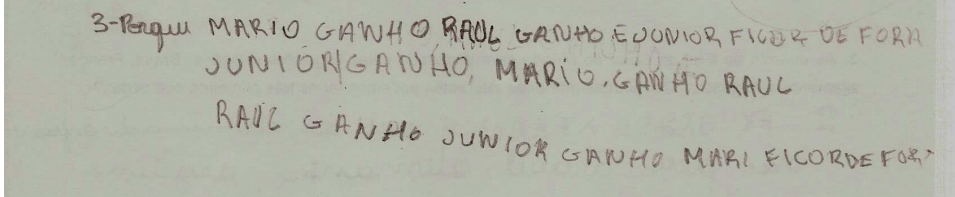 3-Porque MARIO GANHO RAUL GANHO E JUNIOR FICOR DE FORA
JUNIOR GANHO, MARIO. GANHO RAUL
RAUL GANHO JUNIOR GANHO MARI FICOR DE FOR